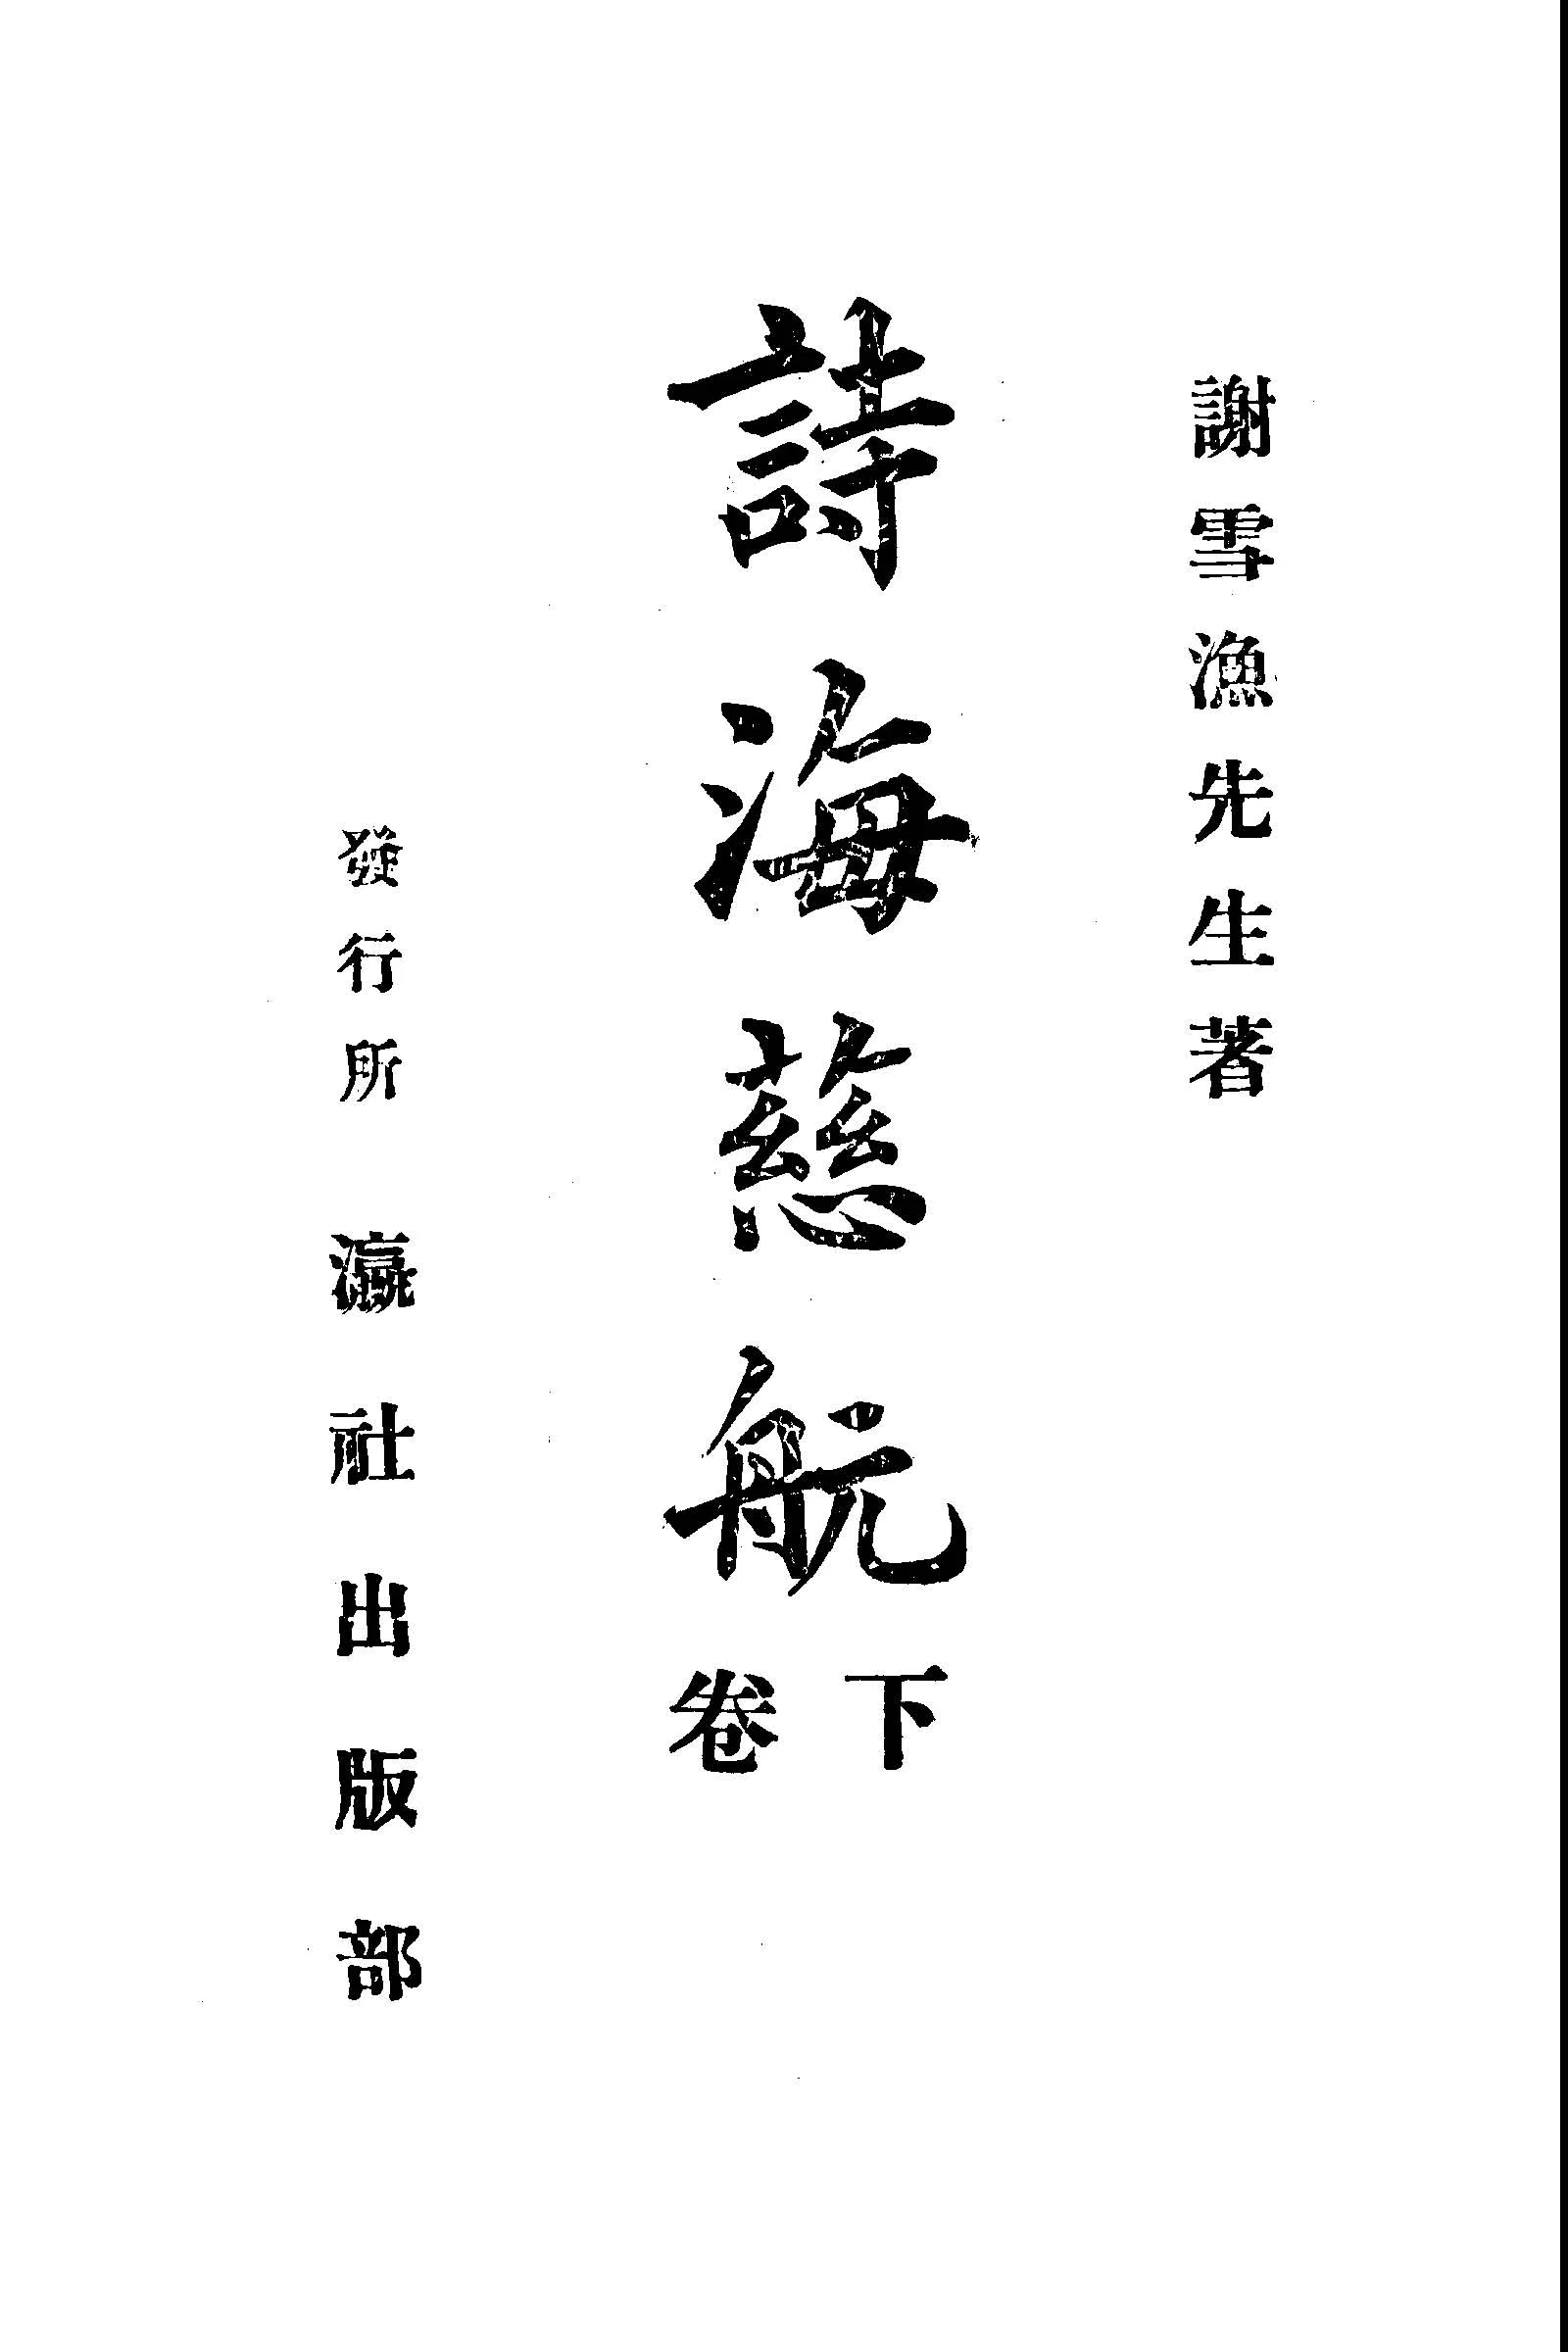 謝雪漁先生著
詩海慈航
下卷
發行所 瀛社出版部